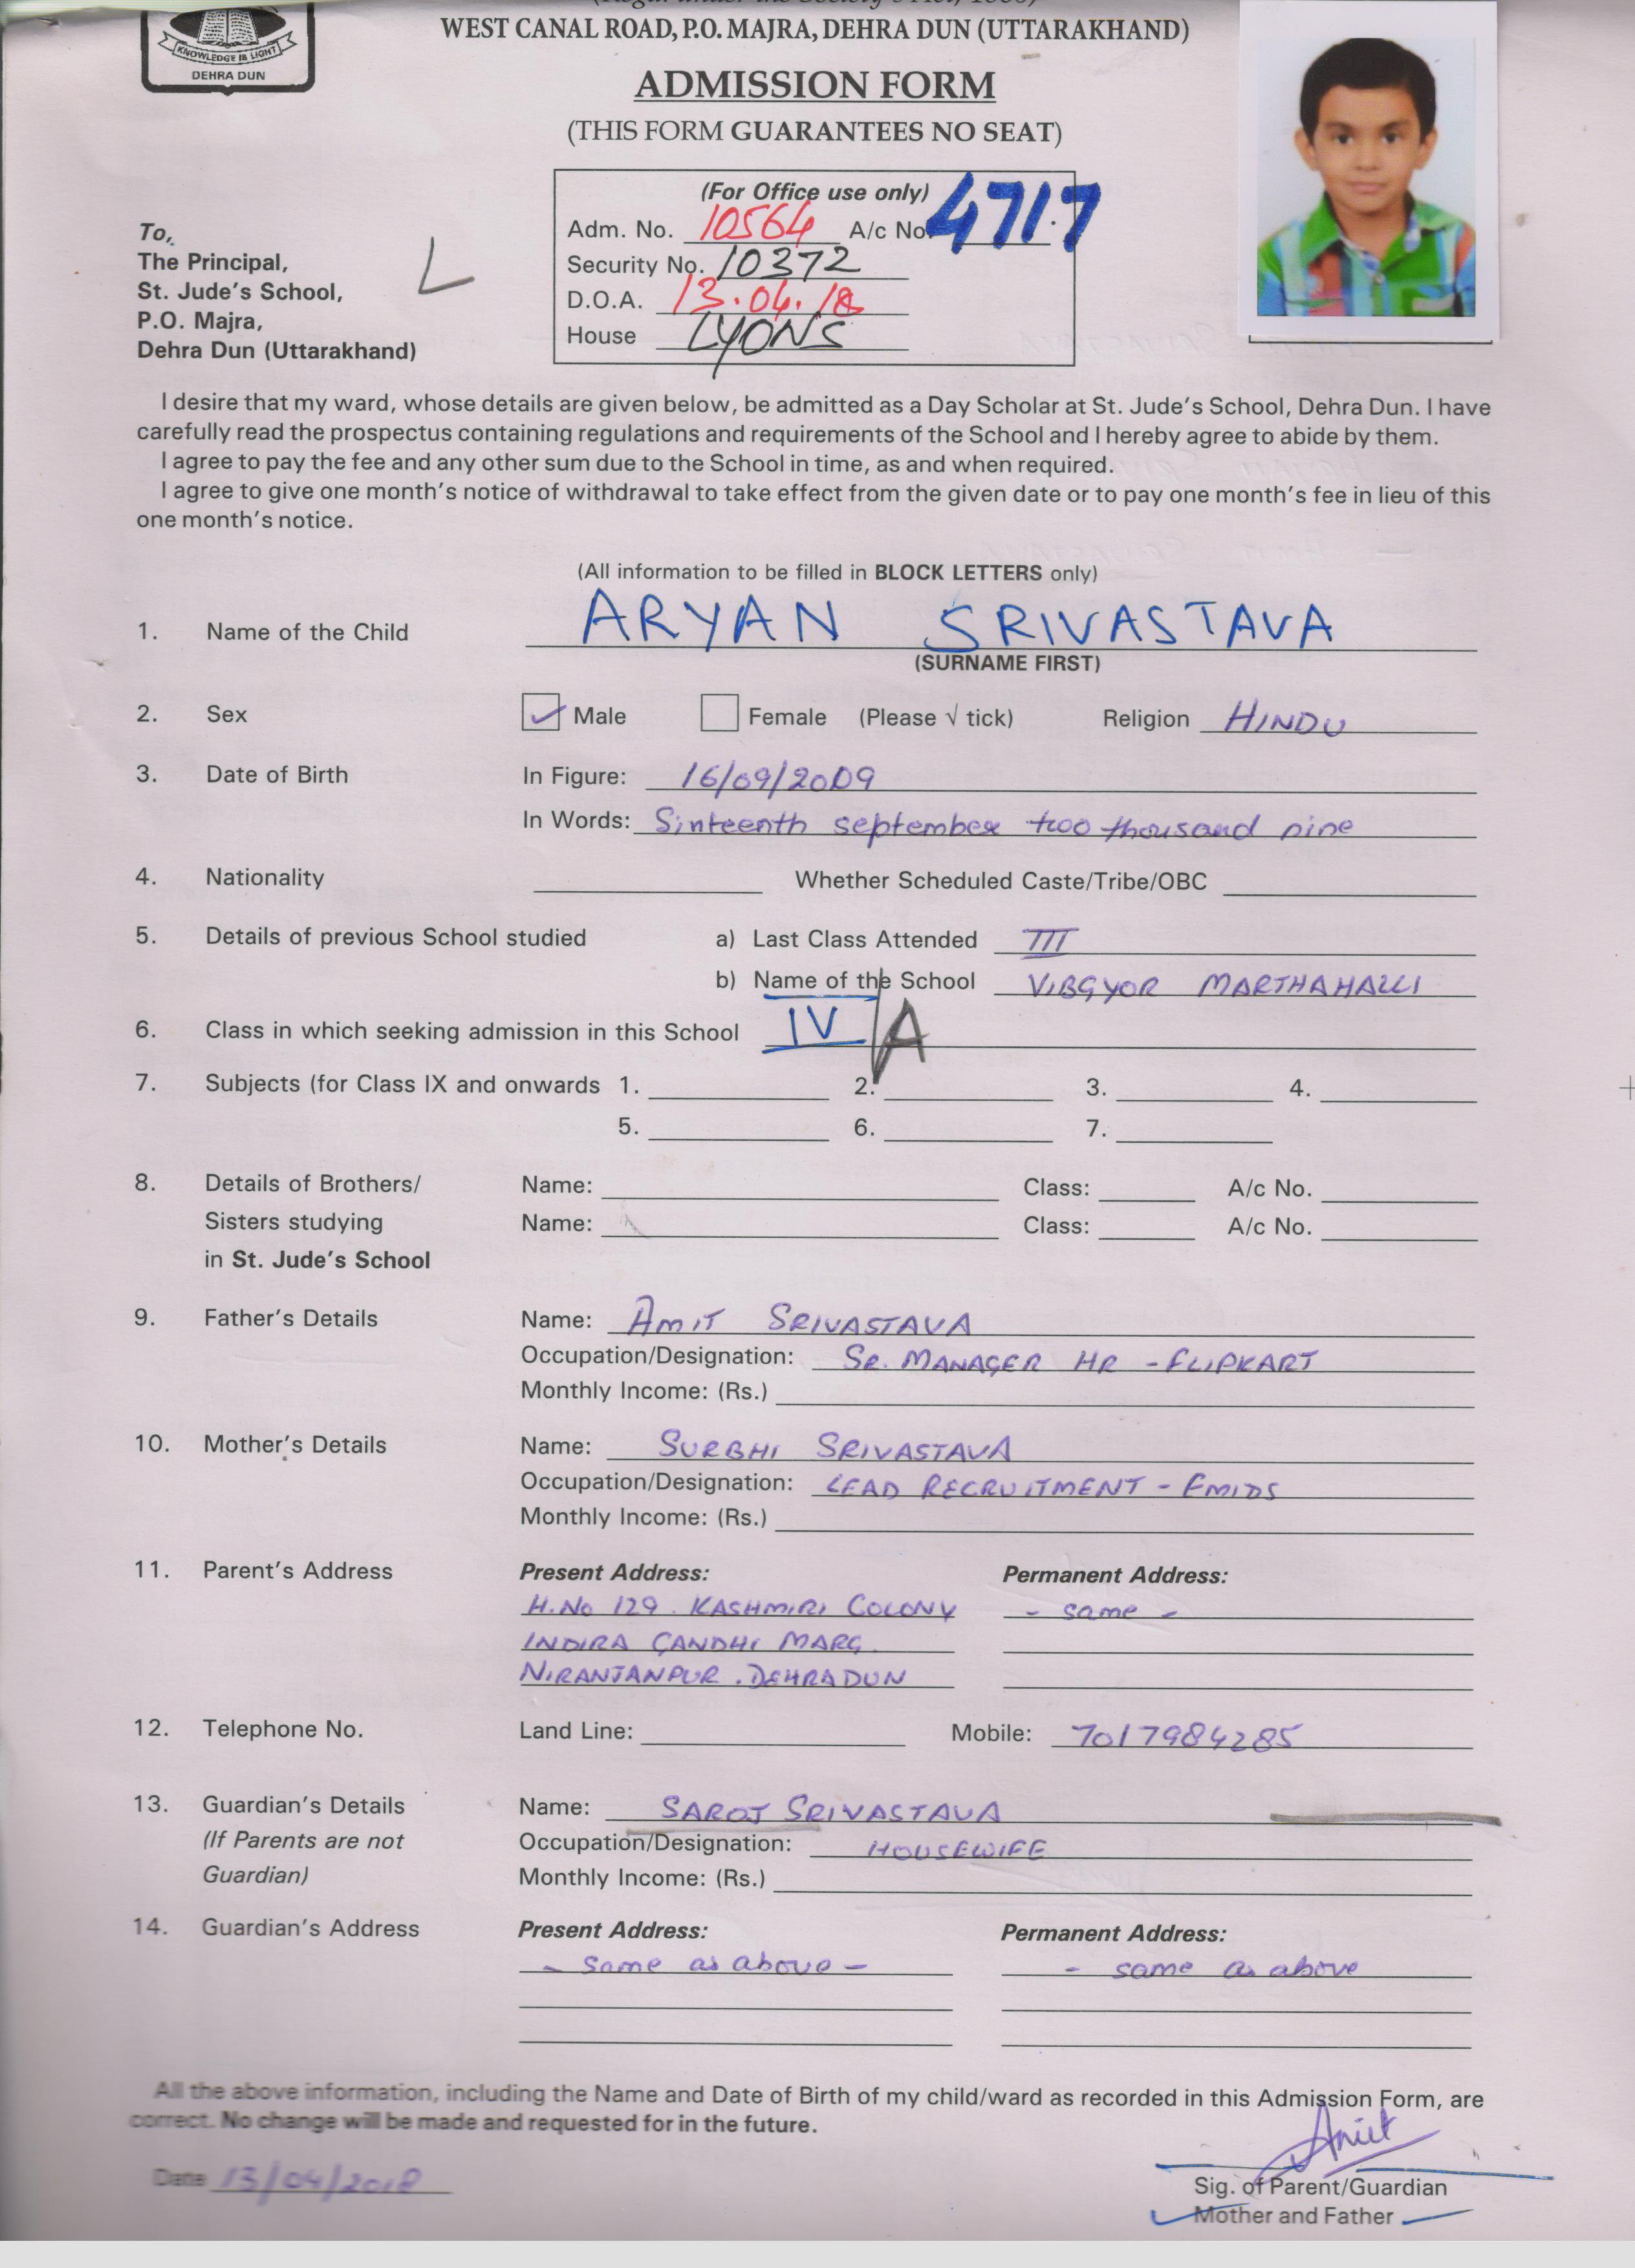 WEST CANAL ROAD, P.O. MAJRA, DEHRA DUN (UTTARAKHAND)
KNOWLEDGE IS LIGHT
DEHRA DUN
ADMISSION FORM
(THIS FORM GUARANTEES NO SEAT)
(For Office use only)
Adm. No. 10564 A/c No. 4717
Security No. 10372
D.O.A. 13.04.18
House LYONS
To,
The Principal,
St. Jude's School,
P.O. Majra,
Dehra Dun (Uttarakhand)
L
I desire that my ward, whose details are given below, be admitted as a Day Scholar at St. Jude's School, Dehra Dun. I have
carefully read the prospectus containing regulations and requirements of the School and I hereby agree to abide by them.
I agree to pay the fee and any other sum due to the School in time, as and when required.
I agree to give one month's notice of withdrawal to take effect from the given date or to pay one month's fee in lieu of this
one month's notice.
(All information to be filled in BLOCK LETTERS only)
1. Name of the Child ARYAN SRIVASTAVA
(SURNAME FIRST)
2. Sex ✓ Male Female (Please √ tick) Religion HINDU
3. Date of Birth In Figure: 16/09/2009
In Words: Sinteenth september two thousand nine
4. Nationality Whether Scheduled Caste/Tribe/OBC
5. Details of previous School studied a) Last Class Attended III
b) Name of the School VIBGYOR MARTHAHALLI
6. Class in which seeking admission in this School IV/A
7. Subjects (for Class IX and onwards 1. 2. 3. 4.
5. 6. 7.
8. Details of Brothers/ Name: Class: A/c No.
Sisters studying Name: Class: A/c No.
in St. Jude's School
9. Father's Details Name: AMIT SRIVASTAVA
Occupation/Designation: SR. MANAGER HR - FLIPKART
Monthly Income: (Rs.)
10. Mother's Details Name: SURBHI SRIVASTAVA
Occupation/Designation: LEAD RECRUITMENT - EMIDS
Monthly Income: (Rs.)
11. Parent's Address Present Address: Permanent Address:
H.No 129. KASHMIRI COLONY - same -
INDIRA GANDHI MARG
NIRANJANPUR. DEHRADUN
12. Telephone No. Land Line: Mobile: 7017984285
13. Guardian's Details Name: SAROJ SRIVASTAVA
(If Parents are not Occupation/Designation: HOUSEWIFE
Guardian) Monthly Income: (Rs.)
14. Guardian's Address Present Address: Permanent Address:
- same as above - - same as above
All the above information, including the Name and Date of Birth of my child/ward as recorded in this Admission Form, are
correct. No change will be made and requested for in the future.
Amit
Date 13/04/2018
Sig. of Parent/Guardian
Mother and Father